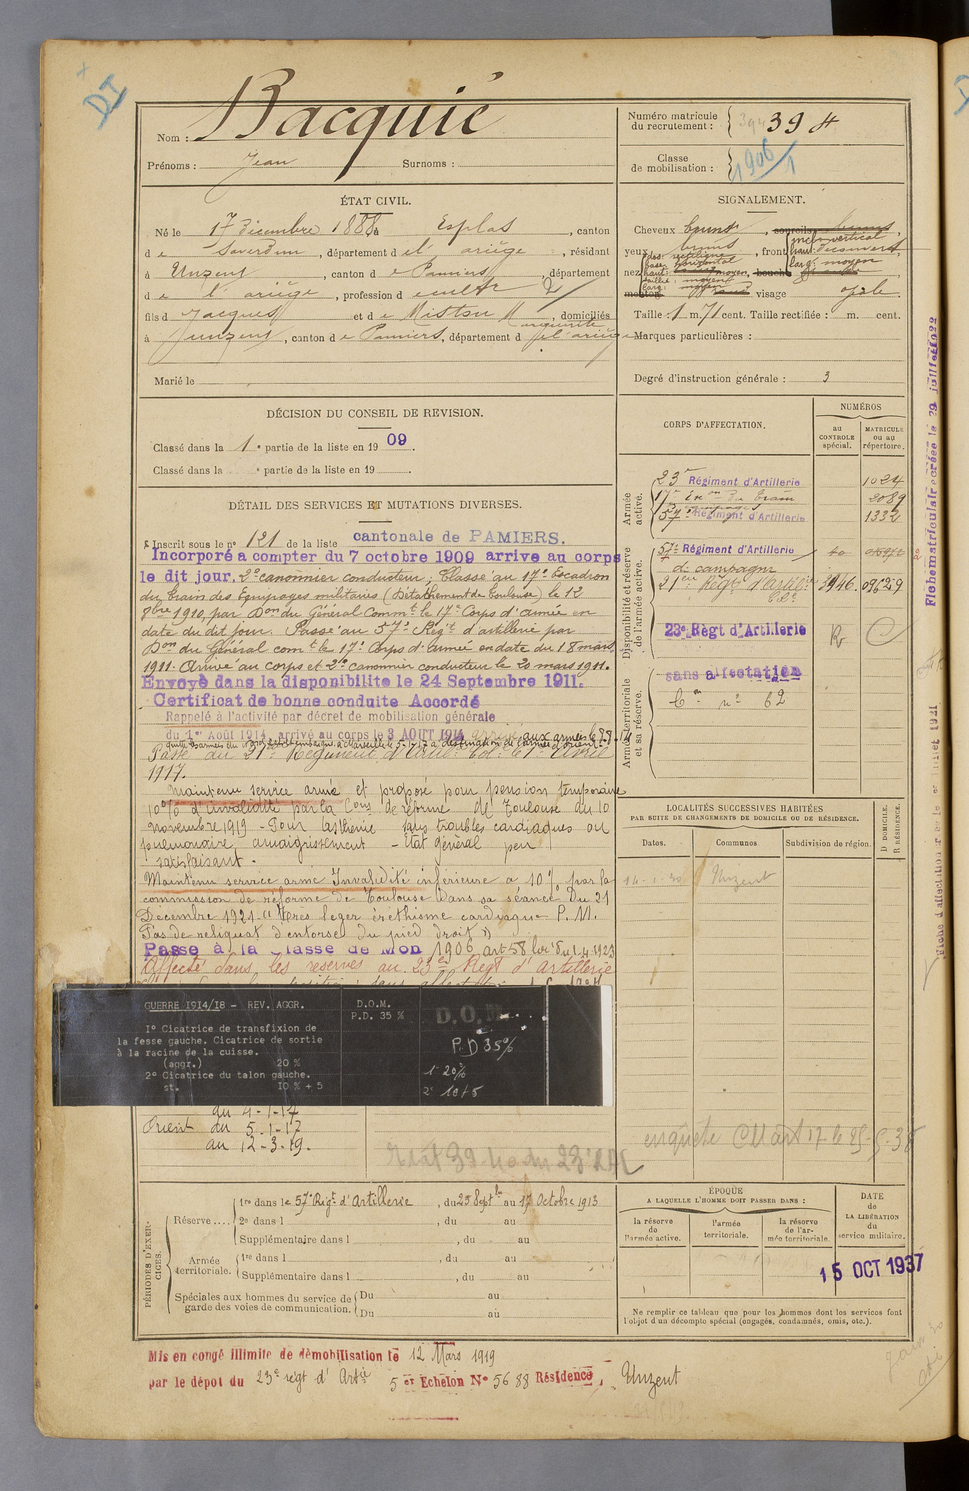 Nom : Bacquié
Prénoms : Jean Surnoms :
Numéro matricule du recrutement : 394
Classe de mobilisation : 1906/1
ÉTAT CIVIL.
Né le 17 Décembre 1888 à Esplas, canton
de Saverdun, département de l'ariège, résidant
à Unzent, canton de Pamiers, département
de l'ariège, profession de cultr
fils de Jacques et de Mistou Marguerite, domiciliés
à Unzent, canton de Pamiers, département de l'ariège
Marié le
SIGNALEMENT.
Cheveux bruns, sourcils bruns,
yeux bruns, front
incl: vertical
haut: découvert
larg: moyen
nez
dos: rectiligne
base: horizontal
haut: moyen, bouche
saillie: moyent
larg: moyen
menton visage ovale.
Taille : 1 m. 71 cent. Taille rectifiée : m. cent.
Marques particulières :
Degré d'instruction générale : 3
DÉCISION DU CONSEIL DE REVISION.
Classé dans la 1e partie de la liste en 1909.
Classé dans la e partie de la liste en 19 .
DÉTAIL DES SERVICES ET MUTATIONS DIVERSES.
Inscrit sous le n° 121 de la liste cantonale de PAMIERS.
Incorporé a compter du 7 octobre 1909 arrive au corps
le dit jour. 2e canonnier conducteur; Classé au 17e Escadron
du train des Equipages militaires (Détachement de Toulouse) le 12
8bre 1910, par Don du Général Commt le 17e Corps d'armée en
date du dit jour. Passé au 57e Régt d'artillerie par
Don du Général comt le 17e Corps d'Armée en date du 18 mars
1911. Arrivé au corps et 2e canonnier conducteur le 20 mars 1911.
Envoyé dans la disponibilite le 24 Septembre 1911.
Certificat de bonne conduite Accordé
Rappelé à l'activité par décret de mobilisation générale
du 1er Août 1914, arrivé au corps le 3 AOUT 1914 aux armées le
Passé au 21e Régiment d'Artie Colle le 1er Avril
1917.
Maintenu service armé et proposé pour pension temporaire
10% d'invalidité par la Cons de réforme de Toulouse du 10
novembre 1919 - Pour Asthénie sans troubles cardiaques ou
pulmonaire, amaigrissement - Etat général peu
satisfaisant.
Maintenu service armé Invalidité inférieure à 10% par la
commission de réforme de Toulouse dans sa séance du 21
Décembre 1921 "Très leger éréthisme cardiaque P.M.
Pas de reliquat d'entorse du pied droit"
Passé à la classe de Mon 1906 art 58 loi du 1.4.1923
Affecté dans les reserves au 23e Régt d'Artillerie
GUERRE 1914/18 - REV. AGGR. D.O.M.
P.D. 35 %
1° Cicatrice de transfixion de
la fesse gauche. Cicatrice de sortie
à la racine de la cuisse.
(aggr.) 20 %
2° Cicatrice du talon gauche.
st. 10 % + 5
D.O.M.
P.D 35%
1° 20%
2° 10+5
au 4-1-17
Orient du 5-1-17
au 12-3-19.
CORPS D'AFFECTATION.
NUMÉROS
au CONTROLE spécial.
MATRICULE ou au répertoire.
Armée active.
23e Régiment d'Artillerie 1024
17e Eson du train 2089
57e Régiment d'Artillerie 1332
Disponibilité et réserve de l'armée active.
57e Régiment d'Artillerie
de campagne
21eme Régt d'Artie Cole
23e Règt d'Artillerie R
Armée territoriale et sa réserve.
sans affectation
Con n° 62
LOCALITÉS SUCCESSIVES HABITÉES
PAR SUITE DE CHANGEMENTS DE DOMICILE OU DE RÉSIDENCE.
Dates. Communes. Subdivision de région. D DOMICILE. R RÉSIDENCE.
14-1-30 Unzent
PÉRIODES D'EXERCICES.
Réserve.... 1re dans le 57e Régt d'Artillerie, du 25 Septbre au 17 Octobre 1913
2e dans l , du au
Supplémentaire dans l , du au
Armée territoriale. 1re dans l , du au
Supplémentaire dans l , du au
Spéciales aux hommes du service de garde des voies de communication. Du au
Du au
ÉPOQUE
A LAQUELLE L'HOMME DOIT PASSER DANS :
la réserve de l'armée active.
l'armée territoriale.
la réserve de l'armée territoriale.
DATE DE LA LIBÉRATION du service militaire.
15 OCT 1937
Ne remplir ce tableau que pour les hommes dont les services font
l'objet d'un décompte spécial (engagés, condamnés, omis, etc.).
Mis en congé illimité de démobilisation le 12 Mars 1919
par le dépôt du 23e régt d'Artie 5er Echelon N° 5688 Résidence, Unzent
Fiche matriculaire créée le 29 juillet 1922